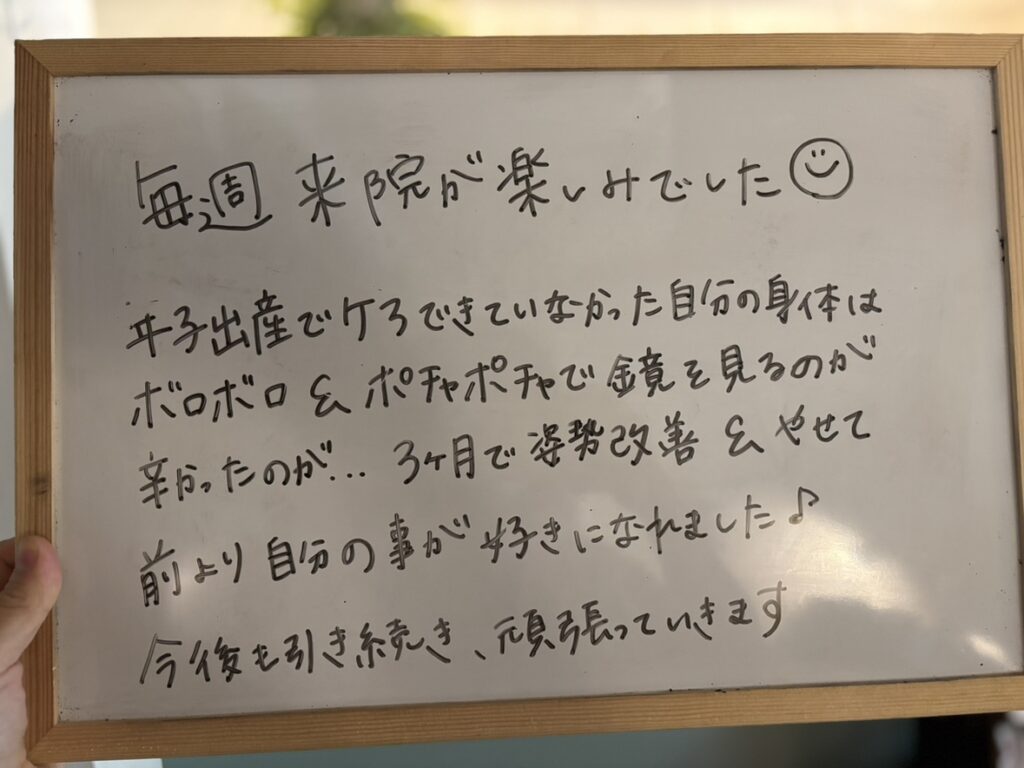 毎週 来院が楽しみでした☺
年子出産でケアできていなかった自分の身体は
ボロボロ & ポチャポチャで鏡を見るのが
辛かったのが!.. 3ヶ月で姿勢改善 & やせて
前より自分の事が好きになれました♪
今後も引き続き、頑張っていきます